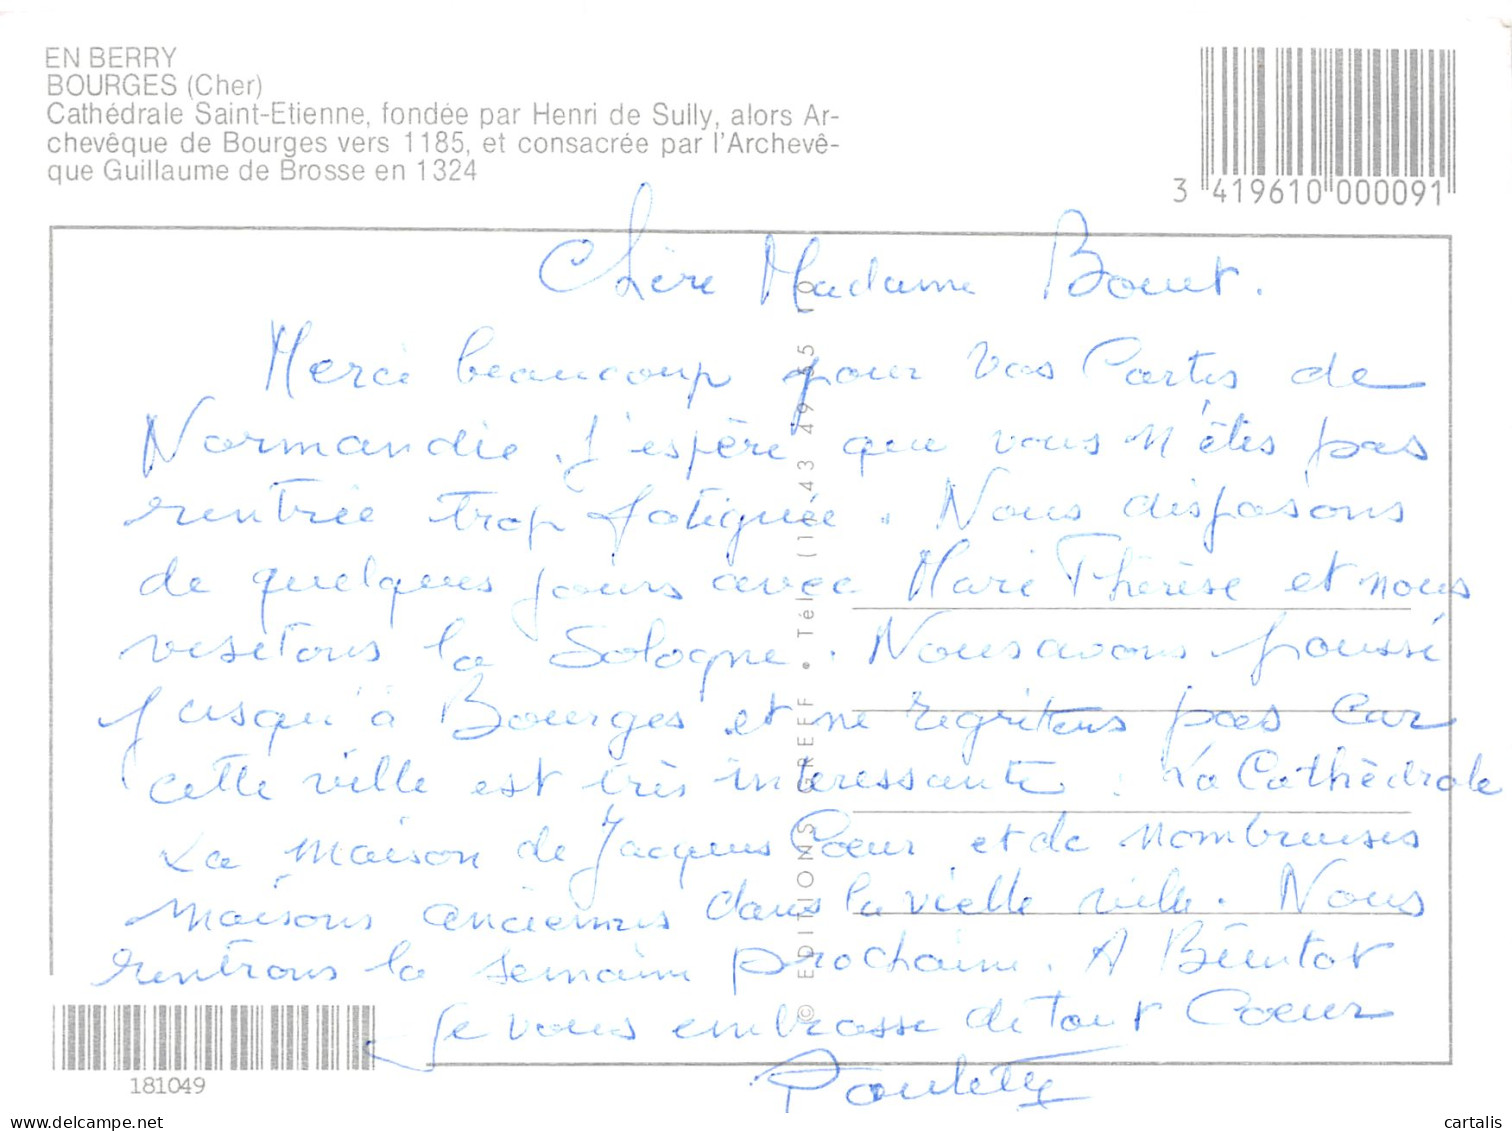 EN BERRY
BOURGES (Cher)
Cathédrale Saint-Etienne, fondée par Henri de Sully, alors Ar-
chevêque de Bourges vers 1185, et consacrée par l'Archevê-
que Guillaume de Brosse en 1324
3 419610 000091
Chère Madame
Merci beaucoup pour vos Cartes de
Normandie. J'espère que vous n'êtes pas
rentrée trop fatiguée. Nous disposons
de quelques jours avec Marie Thérèse et nous
visitons la Sologne. Nous avons poussé
jusqu'à Bourges et ne regrettons pas car
cette ville est très interessante : La Cathèdrale
La maison de Jacques Coeur et de nombreuses
maisons anciennes dans la vielle ville. Nous
rentrons la semaine prochaine. A Bientot
Je vous embrasse de tout Coeur
Paulette
© EDITIONS GREFF • Tél. (1) 43 49
181049
www.delcampe.net
cartalis